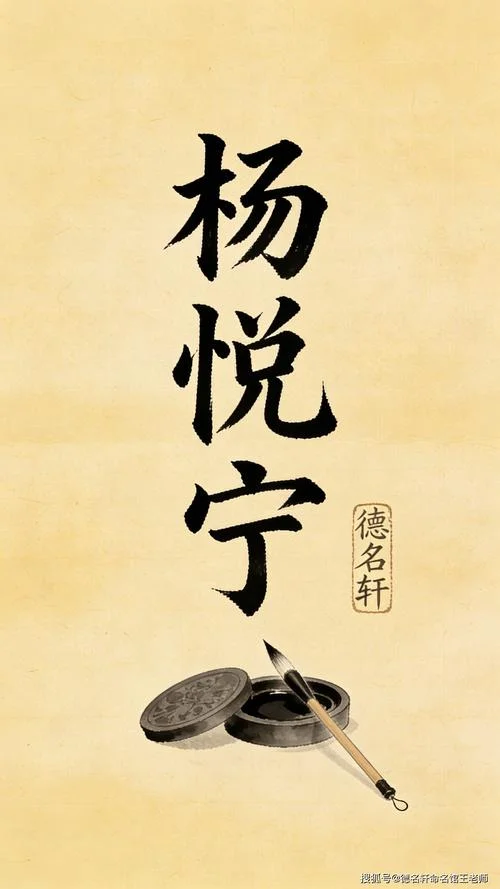 杨悦宁
德名轩
搜狐号@德名轩命名馆王老师